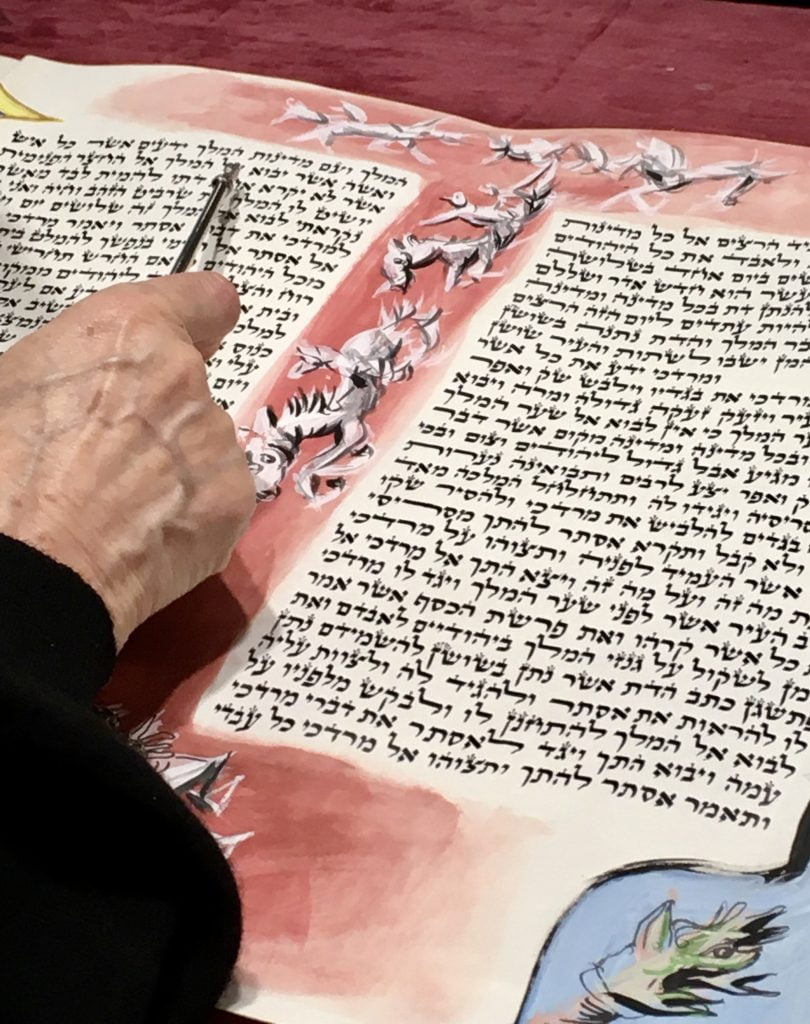 הרצים אל כל מדינות
ולאבד את כל היהודים
ביום אחד בשלושה
עשר הוא חדש אדר ושללם
להנתן דת בכל מדינה ומדינה
להיות עתדים ליום הזה הרצים
המלך והדת נתנה בשושן
המן ישבו לשתות והעיר שושן
ומרדכי ידע את כל אשר
מרדכי את בגדיו וילבש שק ואפר
ויזעק זעקה גדולה ומרה ויבוא
המלך כי אין לבוא אל שער המלך
ובכל מדינה ומדינה מקום אשר דבר
מגיע אבל גדול ליהודים וצום ובכי
ואפר יצע לרבים ותבואינה נערות
ויגידו לה ותתחלחל המלכה מאד
בגדים להלביש את מרדכי ולהסיר שקו
ולא קבל ותקרא אסתר להתך מסריסי
אשר העמיד לפניה ותצוהו על מרדכי
מה זה ועל מה זה ויצא התך אל מרדכי אל
העיר אשר לפני שער המלך ויגד לו מרדכי
כל אשר קרהו ואת פרשת הכסף אשר אמר
לשקול על גנזי המלך ביהודיים לאבדם ואת
פתשגן כתב הדת אשר נתן בשושן להשמידם נתן
לו להראות את אסתר ולהגיד לה ולצוות עליה
לבוא אל המלך להתחנן לו ולבקש מלפניו על
עמה ויבוא התך ויגד לאסתר את דברי מרדכי
ותאמר אסתר להתך ותצוהו אל מרדכי כל עבדי
המלך ועם מדינות המלך ידעים אשר כל איש
ואשה אשר יבוא אל המלך אל החצר הפנימית
אשר לא יקרא דתו להמית לבד מאשר
יושיט לו המלך שרביט הזהב וחיה ואני
נקראתי לבוא המלך זה שלושים יום
למרדכי את אסתר ויאמר מרדכי
אל אסתר אל בנפשך להמלט בית
מכל היהודים אם החרש תחרישי
רוח ליהודים ממקום
ובית אם לעת
כנוס
עלי
ויום